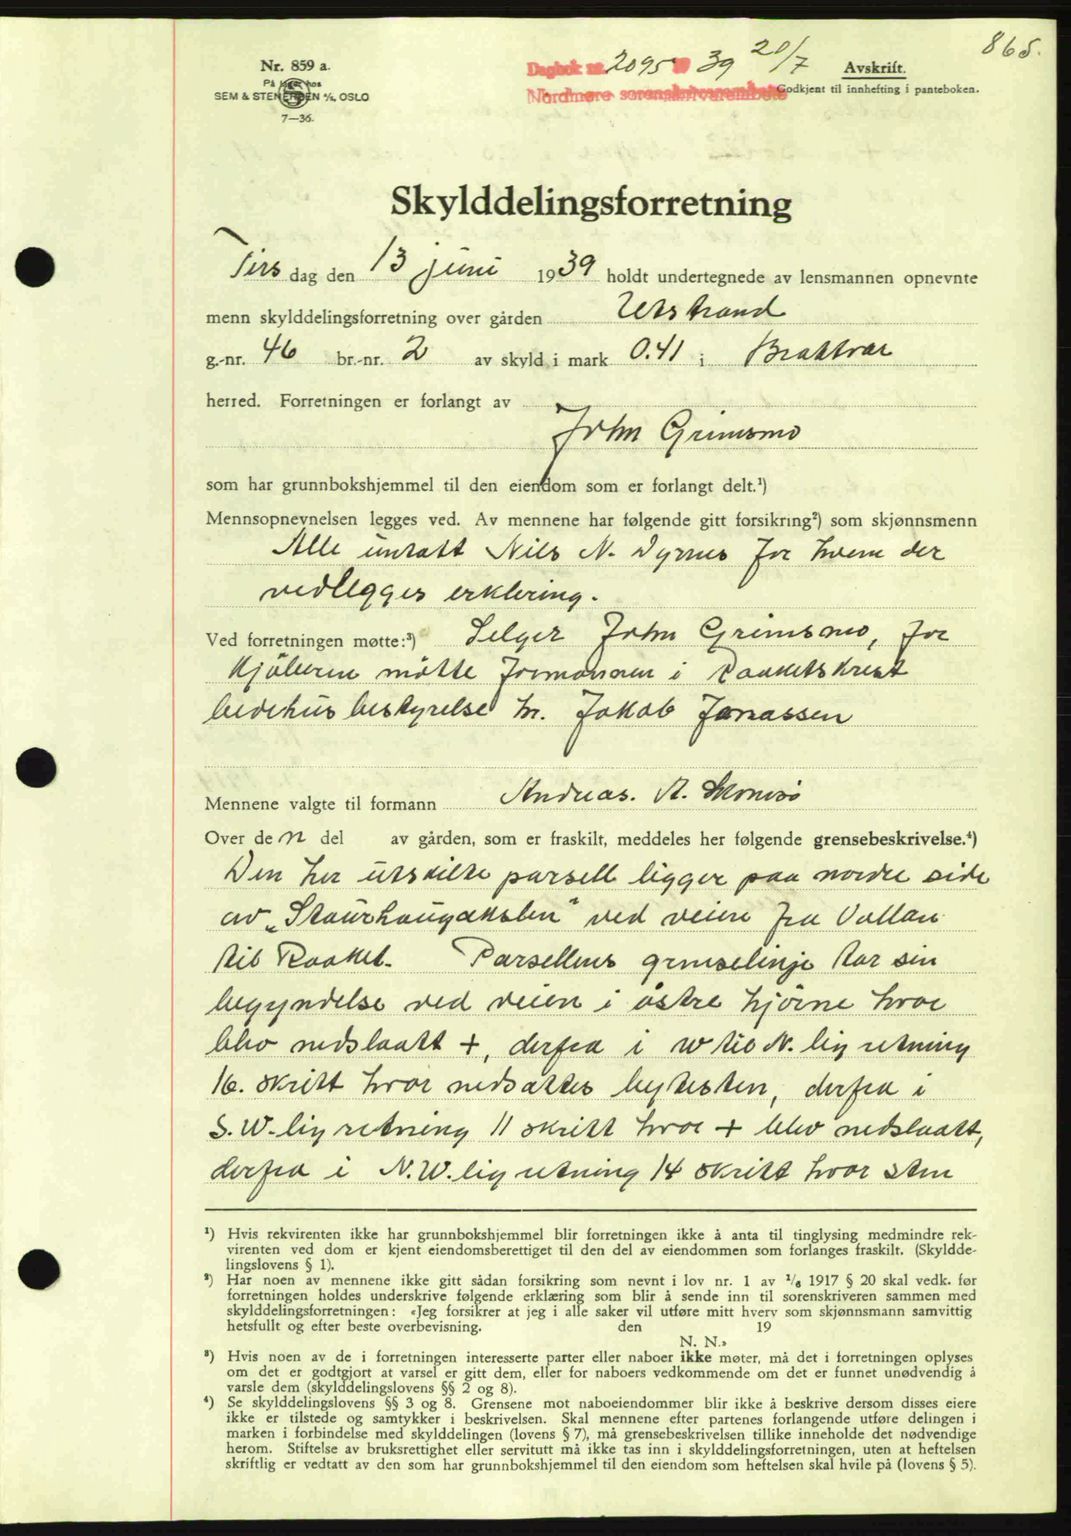 865.
Nr. 859 a.
På lager hos
SEM & STENERSEN A/S, OSLO
7—36.
Dagbok nr. 2095 19 39 20/7
Nordmøre sorenskriverembete
Avskrift.
Godkjent til innhefting i panteboken.
Skylddelingsforretning
Tirs dag den 13 juni 1939 holdt undertegnede av lensmannen opnevnte
menn skylddelingsforretning over gården Utstrand
g.-nr. 46 br.-nr. 2 av skyld i mark 0.41 i Brattvær
herred. Forretningen er forlangt av
John Grimsmo
som har grunnbokshjemmel til den eiendom som er forlangt delt.¹)
Mennsopnevnelsen legges ved. Av mennene har følgende gitt forsikring²) som skjønnsmenn
Alle untatt Nils N. Dyrnes for hvem der
vedlegges erklering.
Ved forretningen møtte:³) Selger John Grimsmo, for
Kjøberen møtte formannen i Raaketskrest
bedehusbestyrelse hr. Jakob Jonassen
Mennene valgte til formann Andreas. A. Skomsø
Over den del av gården, som er fraskilt, meddeles her følgende grensebeskrivelse.⁴)
Den her utskilte parsell ligger paa nordre side
av „Staurhaugakslen“ ved veien fra Vullan
til Raaket. Parsellens grenselinje tar sin
begyndelse ved veien i østre hjørne hvor
blev nedslaatt +, derfra i W til N. lig retning
16. skritt hvor nedsattes bytesten, derfra i
S.W. lig retning 11 skritt hvor + blev nedslaatt,
derfra i N.W. lig retning 14 skritt hvor sten
¹) Hvis rekvirenten ikke har grunnbokshjemmel blir forretningen ikke å anta til tinglysing medmindre rek-
virenten ved dom er kjent eiendomsberettiget til den del av eiendommen som forlanges fraskilt. (Skyldde-
lingslovens § 1).
²) Har noen av mennene ikke gitt sådan forsikring som nevnt i lov nr. 1 av 1/6 1917 § 20 skal vedk. før
forretningen holdes underskrive følgende erklæring som blir å sende inn til sorenskriveren sammen med
skylddelingsforretningen: «Jeg forsikrer at jeg i alle saker vil utføre mitt hverv som skjønnsmann samvittig
hetsfullt og efter beste overbevisning. den 19
N. N.»
³) Hvis noen av de i forretningen interesserte parter eller naboer ikke møter, må det i forretningen oplyses
om det er godtgjort at varsel er gitt dem, eller for naboers vedkommende om det er funnet unødvendig å
varsle dem (skylddelingslovens §§ 2 og 8).
⁴) Se skylddelingslovens §§ 3 og 8. Grensene mot naboeiendommer blir ikke å beskrive dersom disses eiere
ikke er tilstede og samtykker i beskrivelsen. Skal mennene efter partenes forlangende utføre delingen i
marken i forbindelse med skylddelingen (lovens § 7), må grensebeskrivelsen tillike inneholde det nødvendige
herom. Stiftelse av bruksrettighet eller servitutt må ikke tas inn i skylddelingsforretningen, uten at heftelsen
skriftlig er vedtatt av den som har grunnbokshjemmel til den eiendom som heftelsen skal hvile på (lovens § 5).